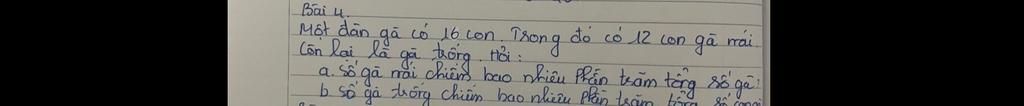 Bài 4.
Một đàn gà có 16 con. Trong đó có 12 con gà mái.
Còn lại là gà trống. Hỏi:
a. Số gà mái chiếm bao nhiêu phần trăm tổng số gà?
b. Số gà trống chiếm bao nhiêu phần trăm tổng số